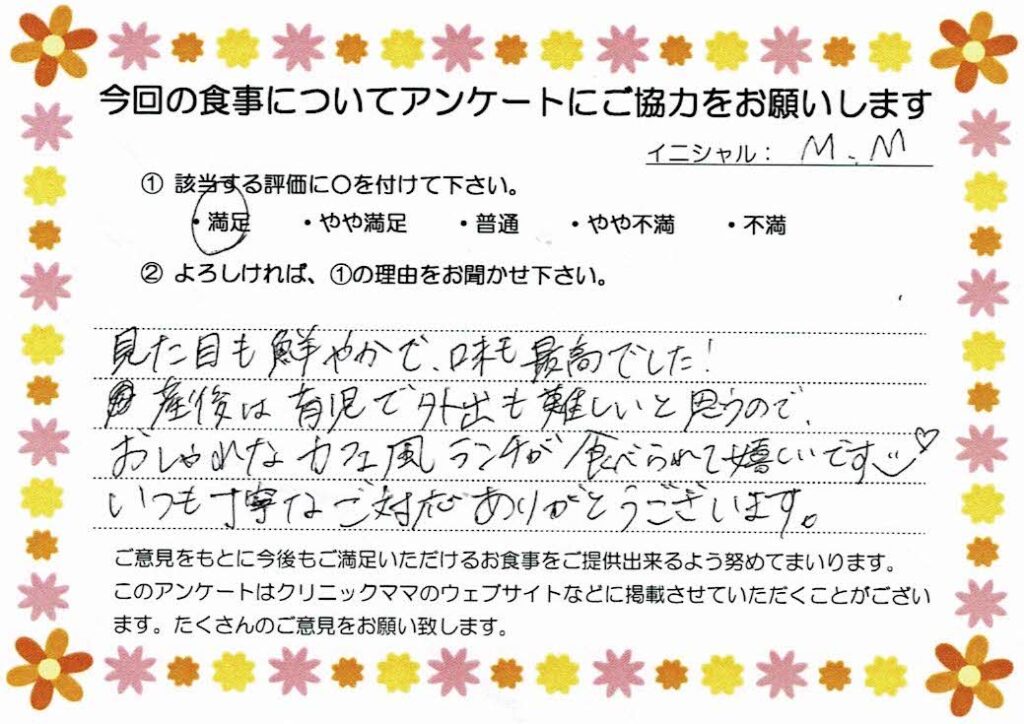 今回の食事についてアンケートにご協力をお願いします
イニシャル： M.M
① 該当する評価に〇を付けて下さい。
・満足　・やや満足　・普通　・やや不満　・不満
② よろしければ、①の理由をお聞かせ下さい。
見た目も鮮やかで、味も最高でした！
産後は育児で外出も難しいと思うので、
おしゃれなカフェ風ランチが食べられて嬉しいです♡
いつも丁寧なご対応ありがとうございます。
ご意見をもとに今後もご満足いただけるお食事をご提供出来るよう努めてまいります。
このアンケートはクリニックママのウェブサイトなどに掲載させていただくことがござい
ます。たくさんのご意見をお願い致します。